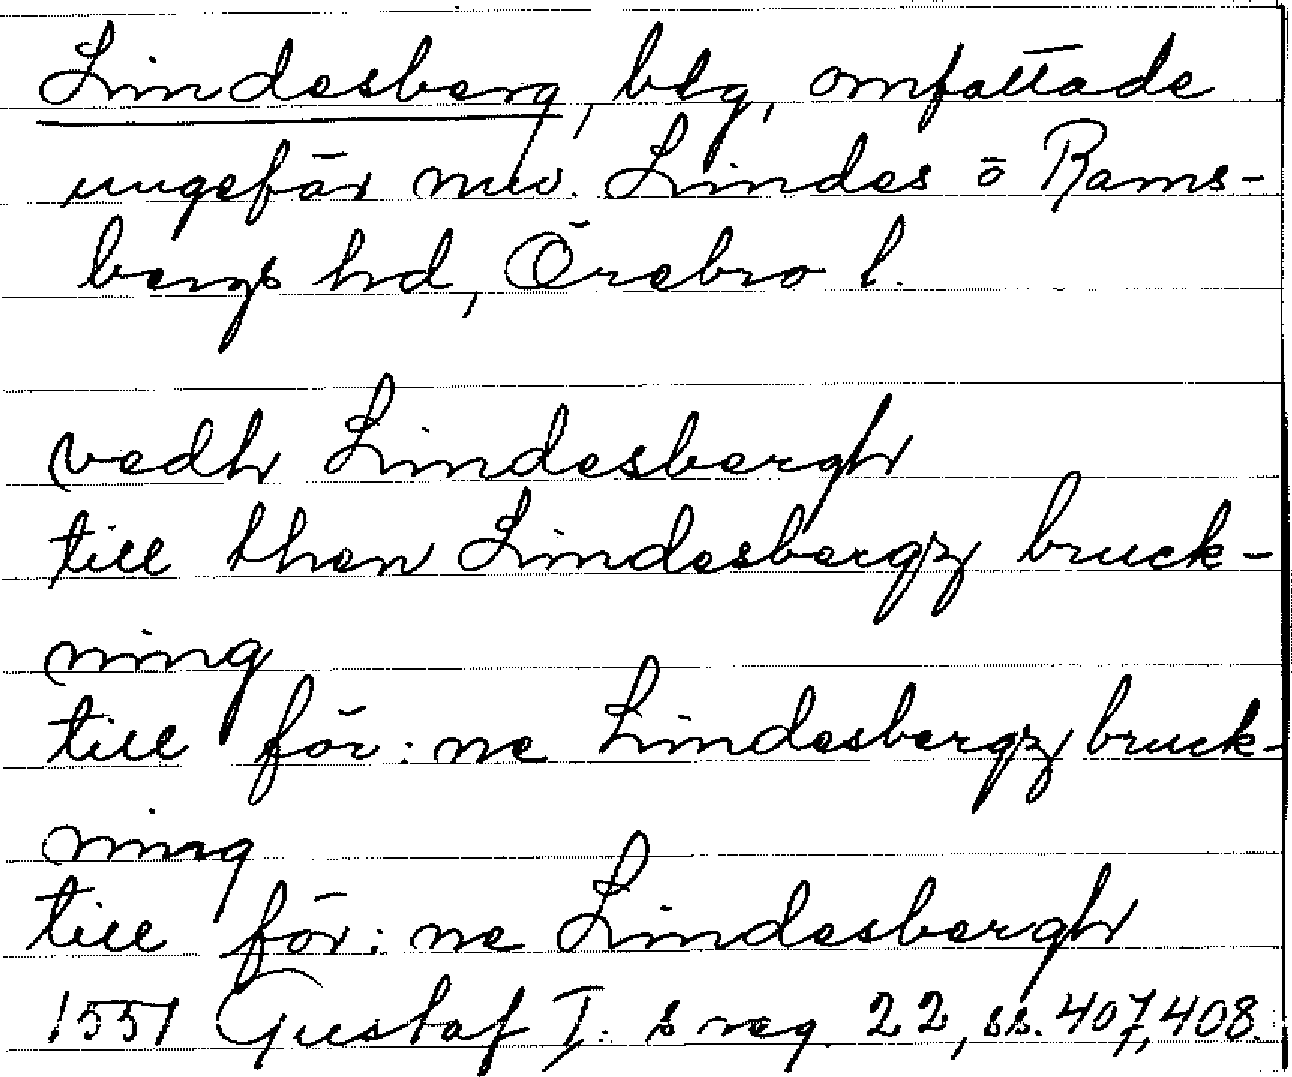 Lindesberg, bslg, omfattade
ungefär nuv. Lindes o Rams-
bergs hrd, Örebro l.
vedh Lindesbergh
till then Lindesbergz bruck-
ning
till för:ne Lindesbergz bruck-
ning
till för:ne Lindesbergh
1551 Gustaf I:s reg. 22, ss. 407, 408.